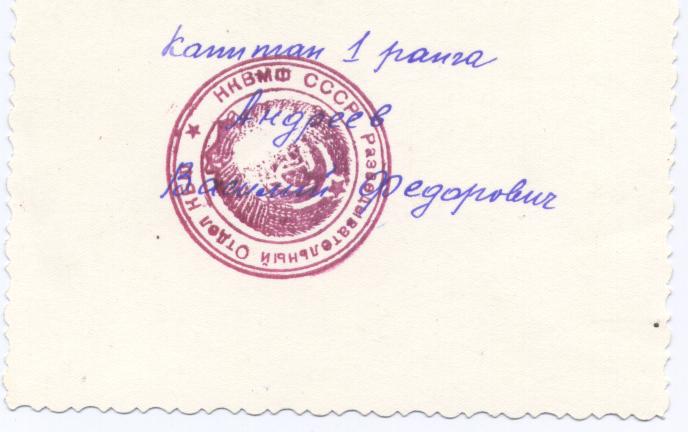 Капитан 1 ранга
Андреев
Василий Федорович
НКВМФ СССР
Разведывательный Отдел